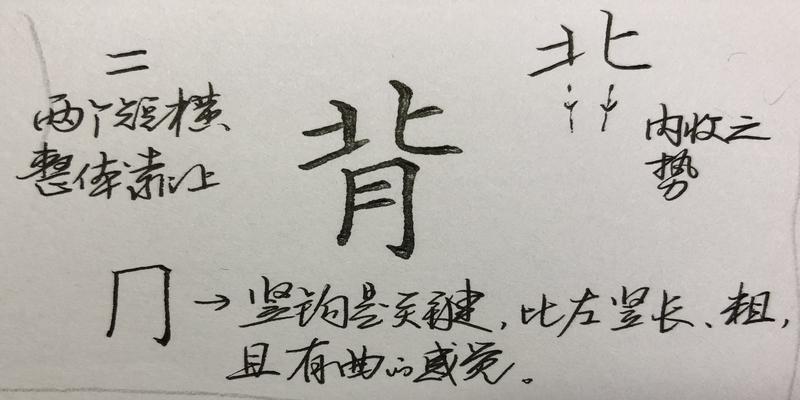 二
两个短横
整体靠上
背
北
内收之
势
冂→竖钩是关键，比左竖长、粗，
且有曲的感觉。